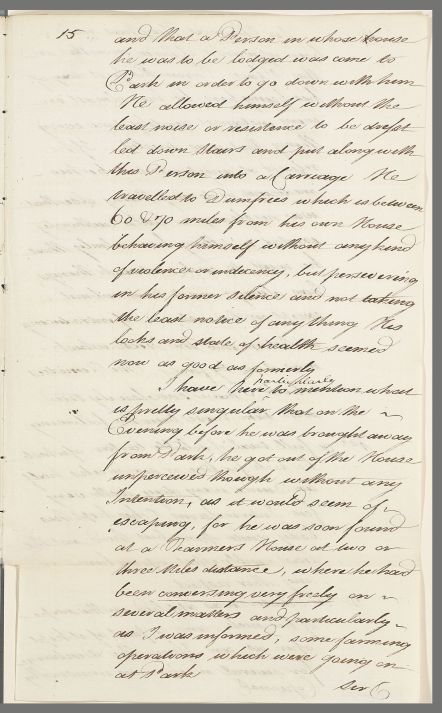 15
and that a Person in whose house
he was to be lodged was come to
Park in order to go down with him
He allowed himself without the
least noise or resistance to be drest
led down stairs and put along with
this Person into a Carriage He
travelled to Dumfries which is between
60 & 70 miles from his own House
behaving himself without any kind
of violence or indecency, but persevering
in his former silence and not taking
the least notice of any thing His
looks and state of health seemed
now as good as formerly
particularly
I have here to mention what
is pretty singular that on the
Evening before he was brought away
from Park, he got out of the House
unperceived though without any
Intention, as it would seem of
escaping, for he was soon found
at a Farmers House at two or
three Miles distance, where he had
been conversing very freely on
several matters and particularly
as I was informed, some farming
operations which were going on
at Park
Sir